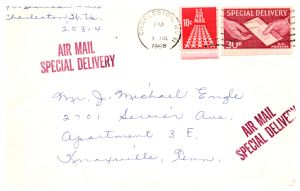 Charleston, W. Va.
25314
AIR MAIL
SPECIAL DELIVERY
CHARLESTON
PM
1968
10c
30c
Mr. J. Michael Engle
2701 Sevier Ave.
Apartment 3 E.
Knoxville, Tenn.
AIR MAIL
SPECIAL DELIVERY